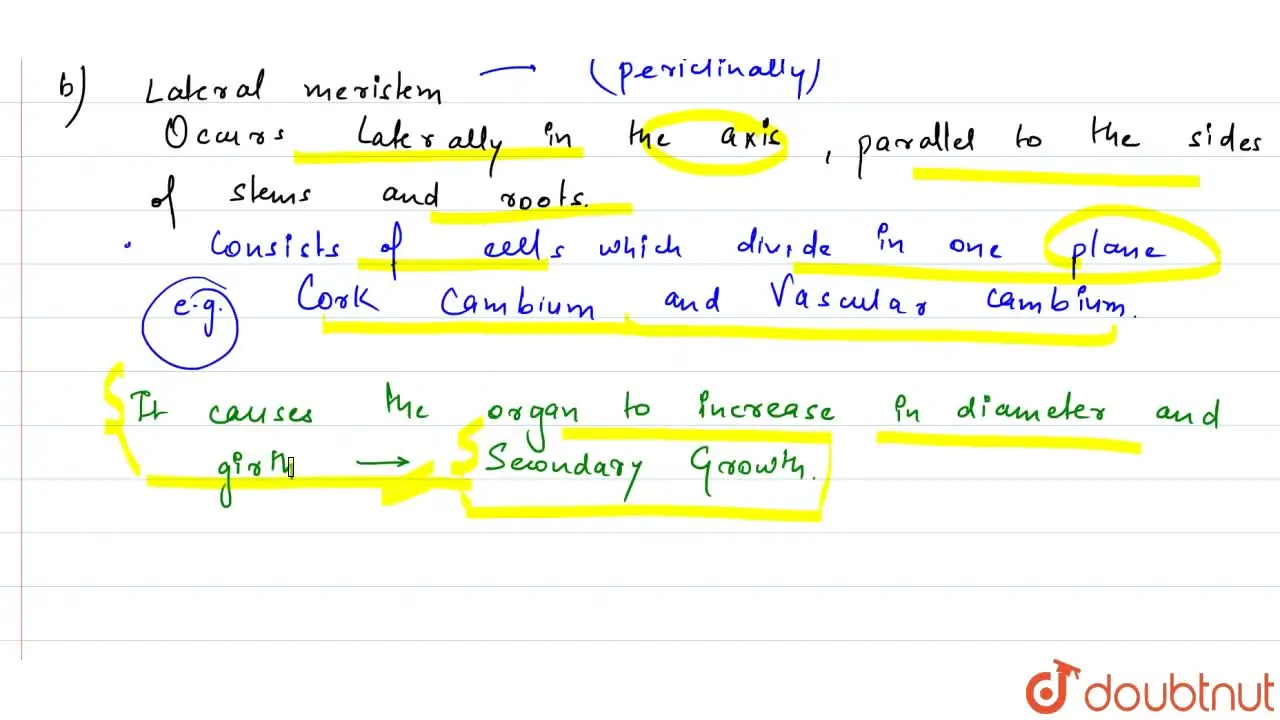 b) Lateral meristem — (periclinally)
Occurs Laterally in the axis, parallel to the sides
of stems and roots.
. Consists of cells which divide in one plane
e.g. Cork Cambium and Vascular cambium.
It causes the organ to increase in diameter and
girth → Secondary Growth.
doubtnut